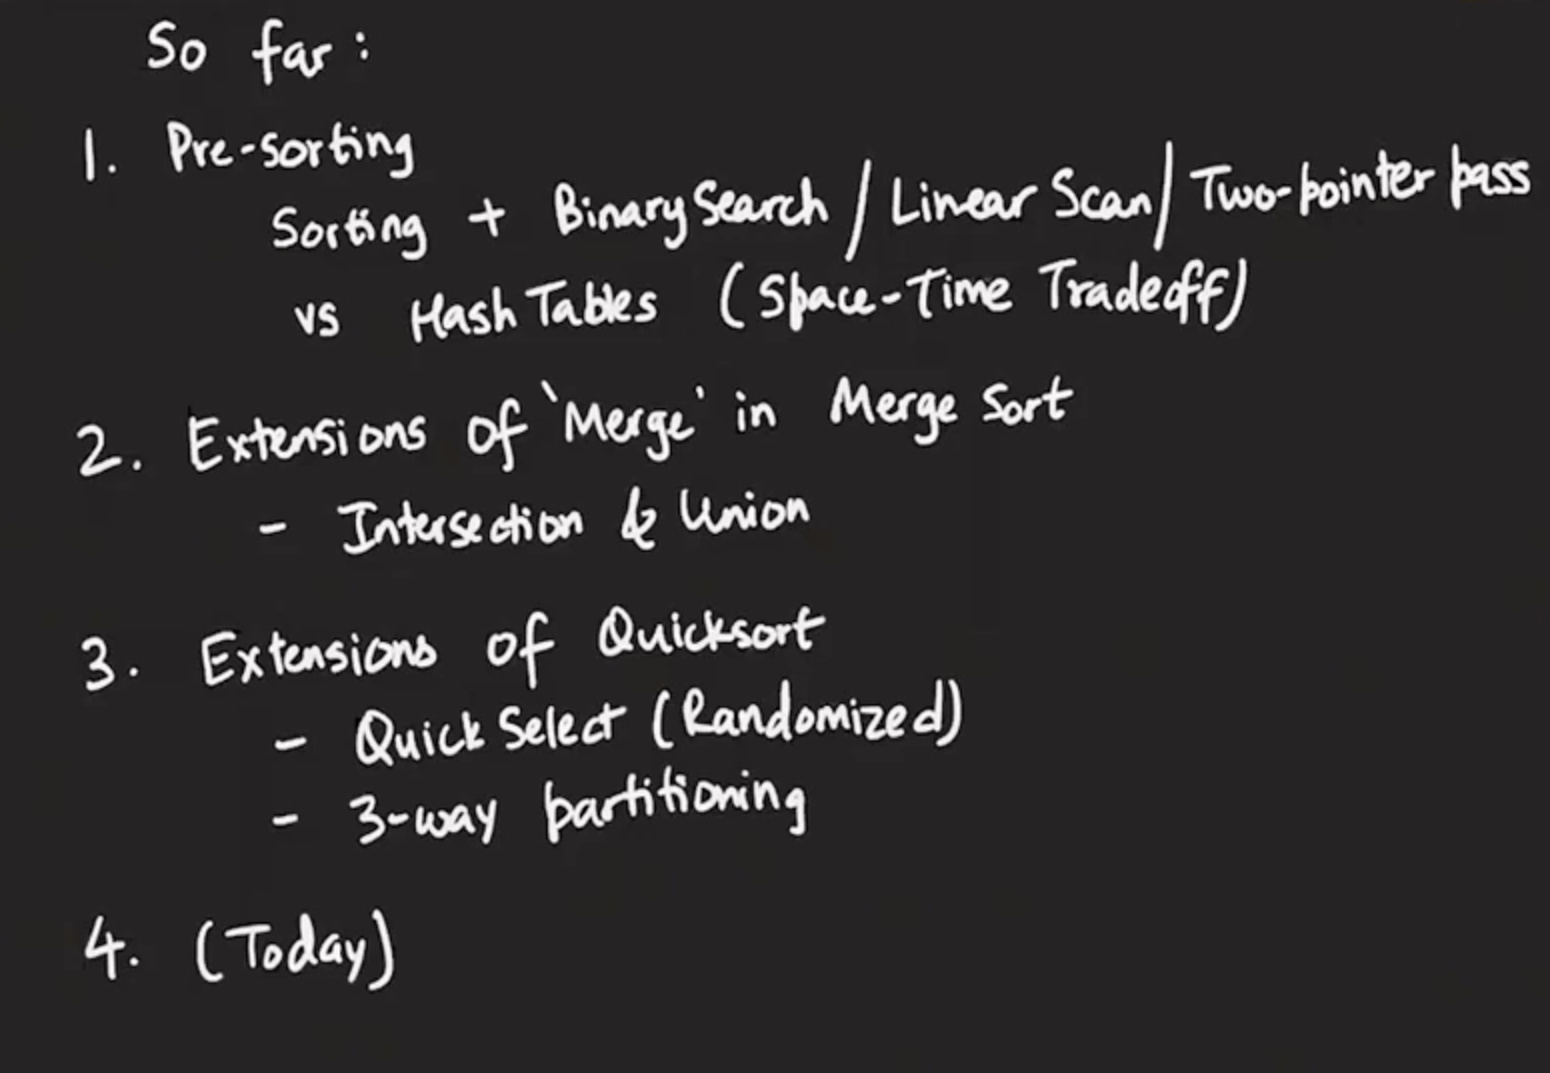 So far:
1. Pre-sorting
Sorting + Binary Search / Linear Scan / Two-pointer pass
vs Hash Tables (Space-Time Tradeoff)
2. Extensions of 'Merge' in Merge Sort
- Intersection & Union
3. Extensions of Quicksort
- Quick Select (Randomized)
- 3-way partitioning
4. (Today)